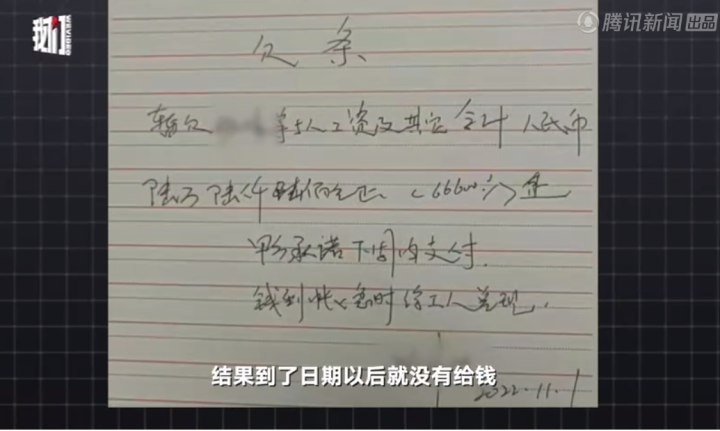 我们
WEVIDEO
腾讯新闻 出品
欠条
暂欠 等5人工资及其它合计人民币
陆万陆仟陆佰元正（66600元）是
甲方承诺下周内支付.
钱到帐及时给工人兑现.
结果到了日期以后就没有给钱
2022.11.1